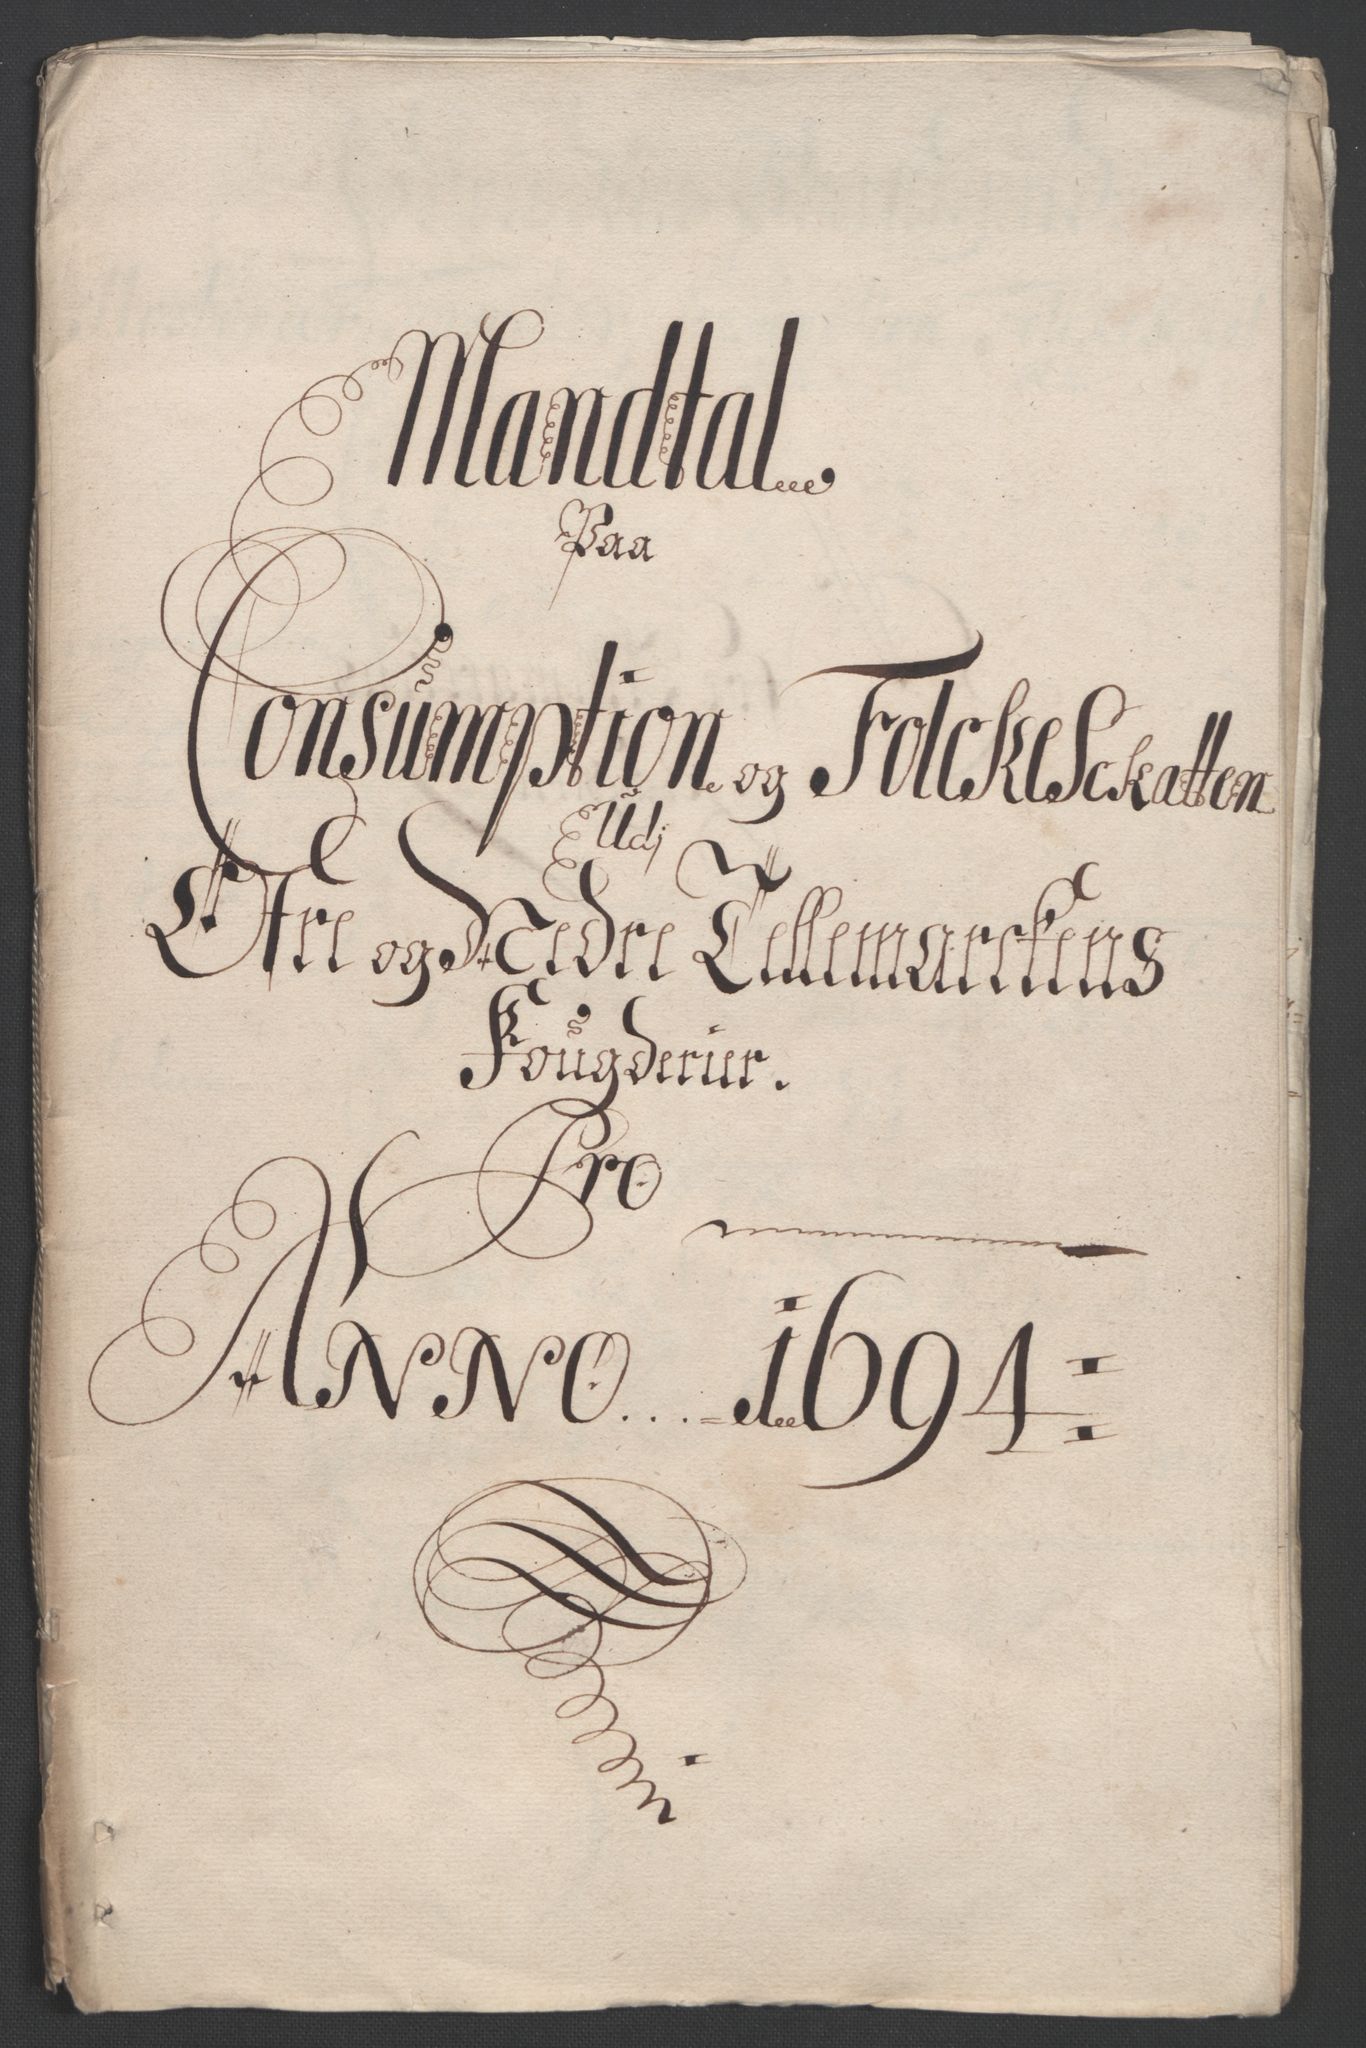 Mandtal
Paa
Consumption og FolckeSckatten
Udj
Øfre og Nedre Tellemarckens
Fougderier.
Pro
ANNO ... 1694